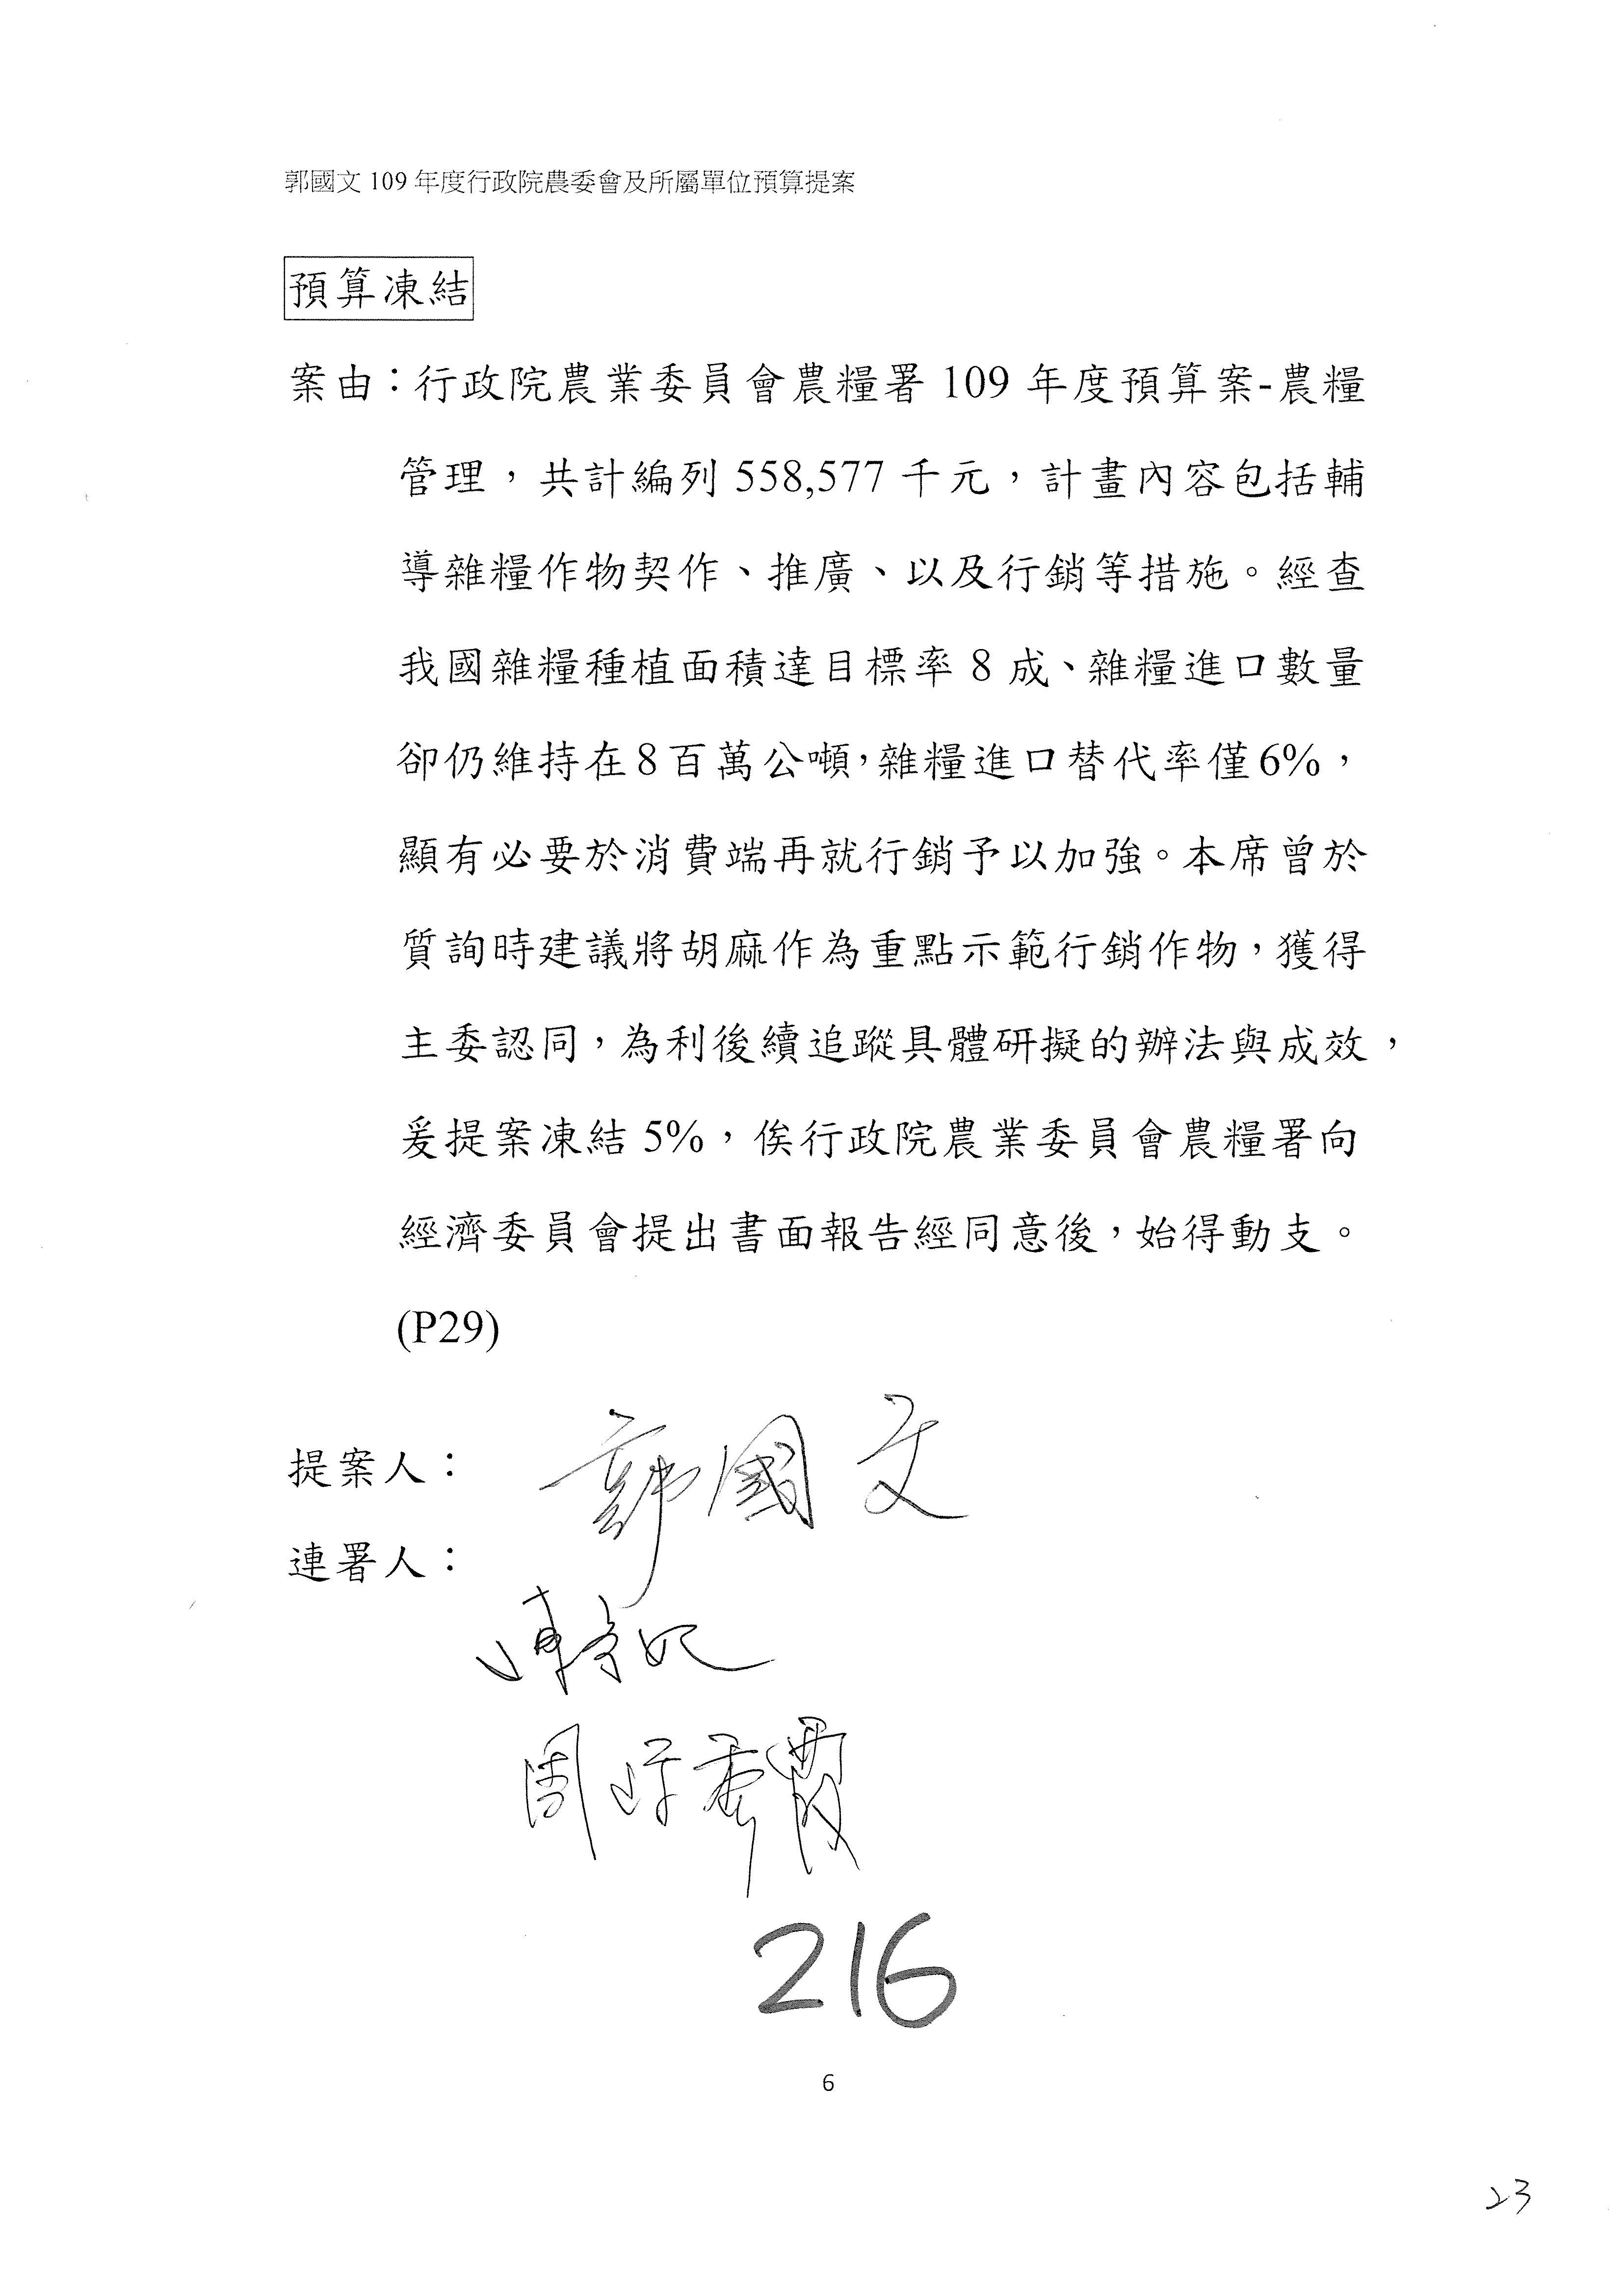 郭國文 109 年度行政院農委會及所屬單位預算提案
預算凍結
案由：行政院農業委員會農糧署 109 年度預算案-農糧
管理，共計編列 558,577 千元，計畫內容包括輔
導雜糧作物契作、推廣、以及行銷等措施。經查
我國雜糧種植面積達目標率 8 成、雜糧進口數量
卻仍維持在8百萬公噸，雜糧進口替代率僅6%，
顯有必要於消費端再就行銷予以加強。本席曾於
質詢時建議將胡麻作為重點示範行銷作物，獲得
主委認同，為利後續追蹤具體研擬的辦法與成效，
爰提案凍結 5%，俟行政院農業委員會農糧署向
經濟委員會提出書面報告經同意後，始得動支。
(P29)
提案人： 郭國文
連署人：
陳亭妃
周春霞
216
6
23